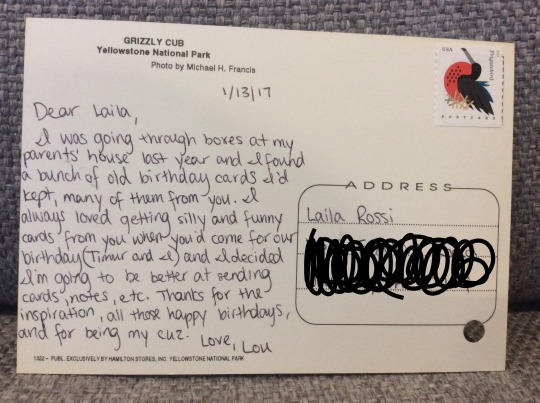 GRIZZLY CUB
Yellowstone National Park
Photo by Michael H. Francis
1/13/17
Dear Laila,
I was going through boxes at my
parents' house last year and I found
a bunch of old birthday cards I'd
kept, many of them from you. I
always loved getting silly and funny
cards from you when you'd come for our
birthday (Timur and I) and I decided
I'm going to be better at sending
cards, notes, etc. Thanks for the
inspiration, all those happy birthdays,
and for being my cuz. Love, Lou
USA
POSTCARD
ADDRESS
Laila Rossi
1322 – PUBL. EXCLUSIVELY BY HAMILTON STORES, INC. YELLOWSTONE NATIONAL PARK